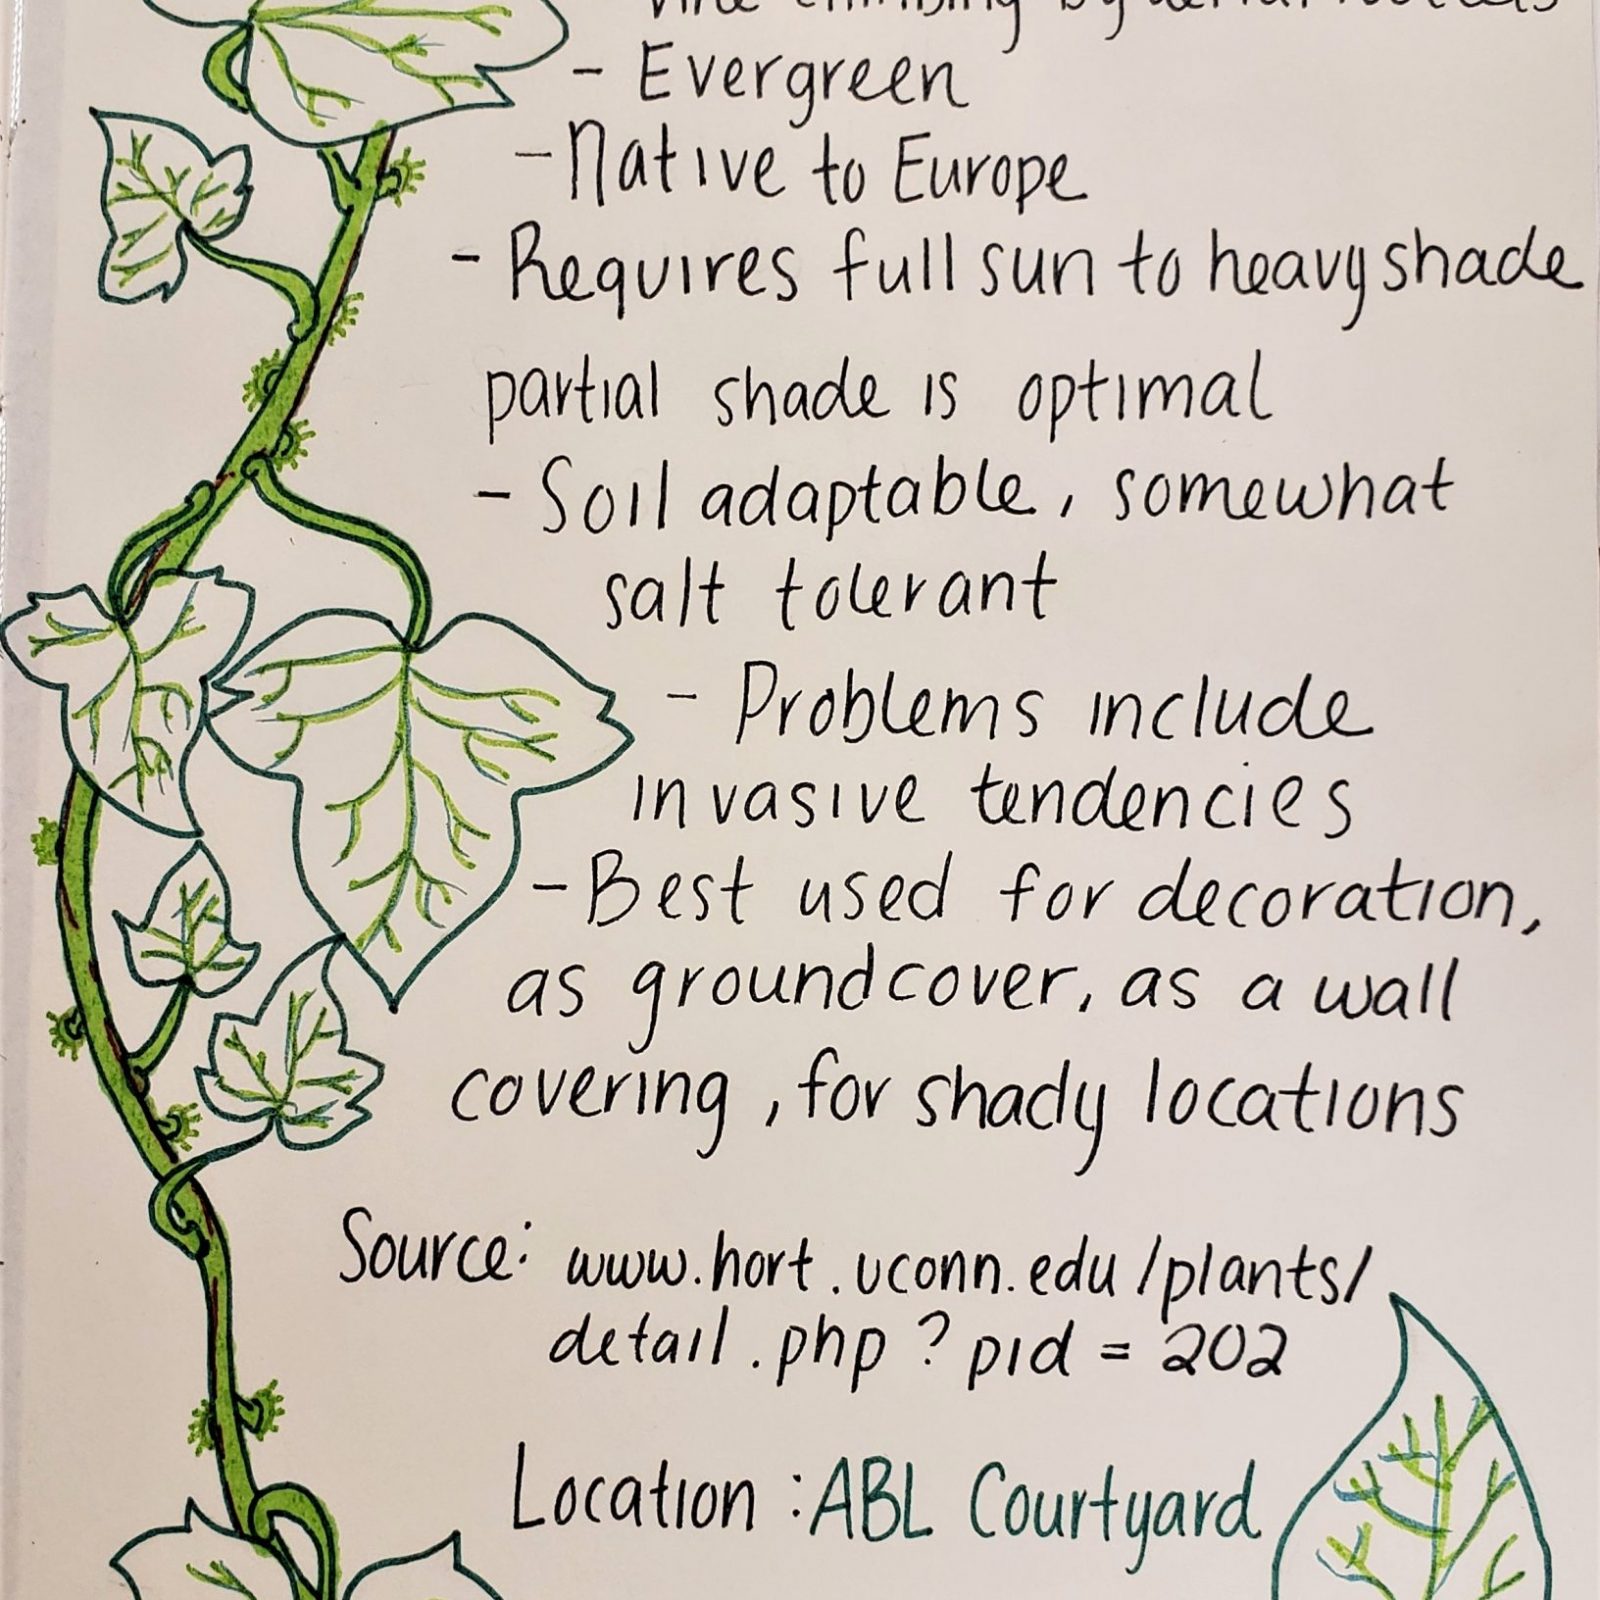 vine climbing by aerial rootlets
- Evergreen
- Native to Europe
- Requires full sun to heavy shade
partial shade is optimal
- Soil adaptable, somewhat
salt tolerant
- Problems include
invasive tendencies
- Best used for decoration,
as groundcover, as a wall
covering, for shady locations
Source: www.hort.uconn.edu/plants/
detail.php?pid=202
Location: ABL Courtyard